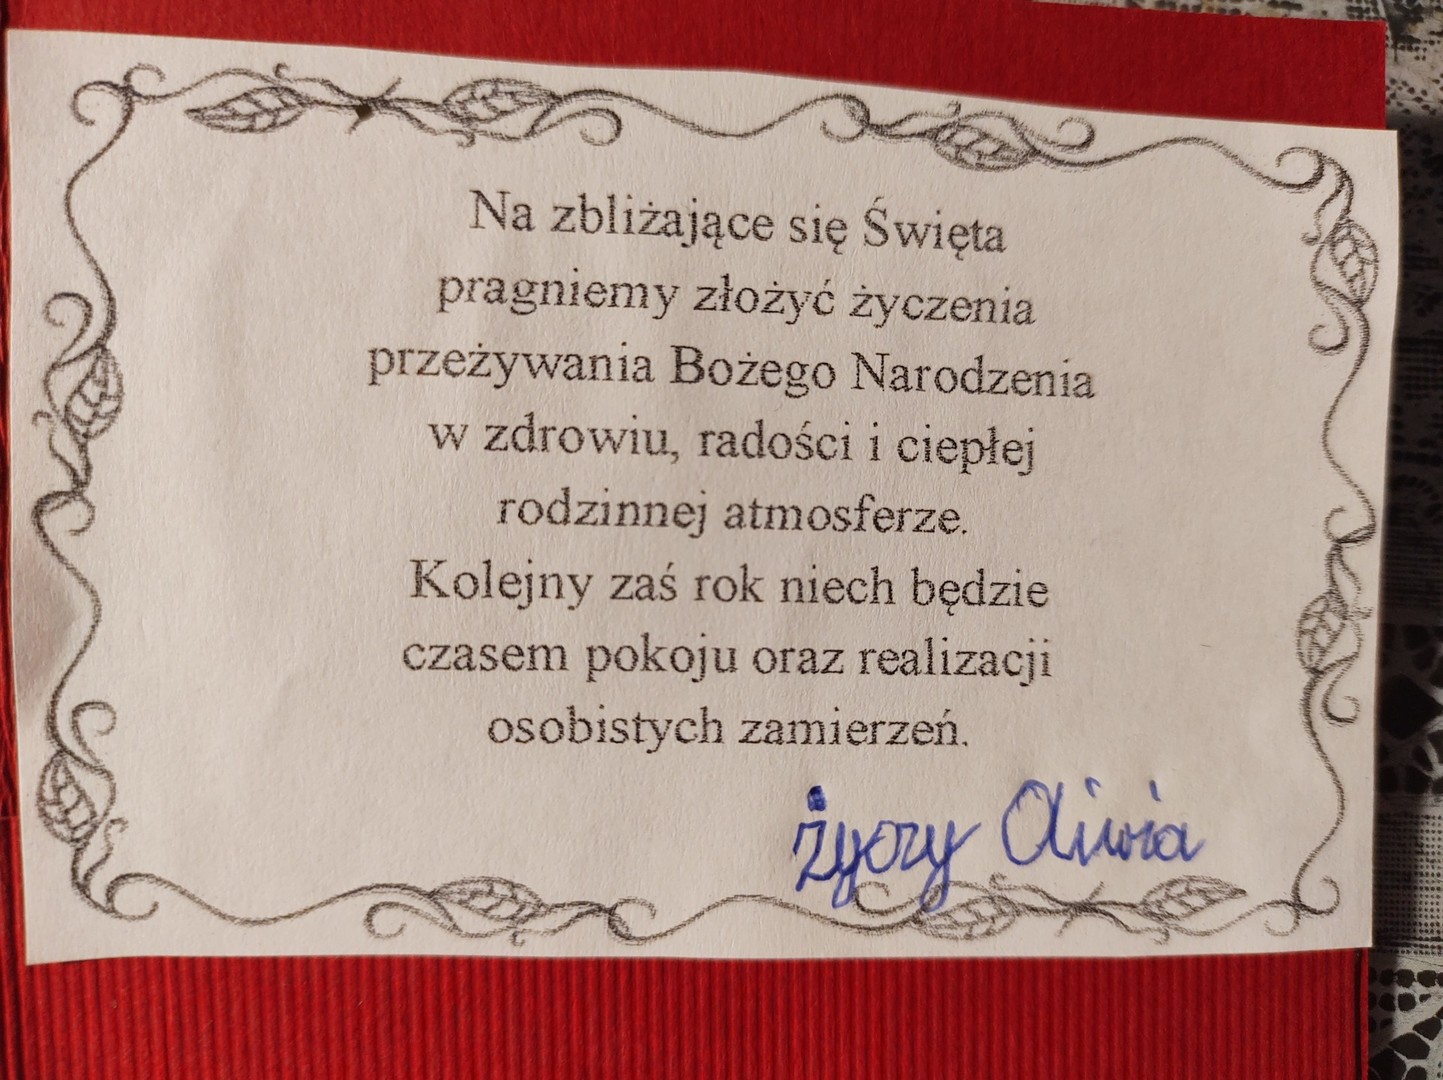 Na zbliżające się Święta
pragniemy złożyć życzenia
przeżywania Bożego Narodzenia
w zdrowiu, radości i ciepłej
rodzinnej atmosferze.
Kolejny zaś rok niech będzie
czasem pokoju oraz realizacji
osobistych zamierzeń.
życzy Oliwia